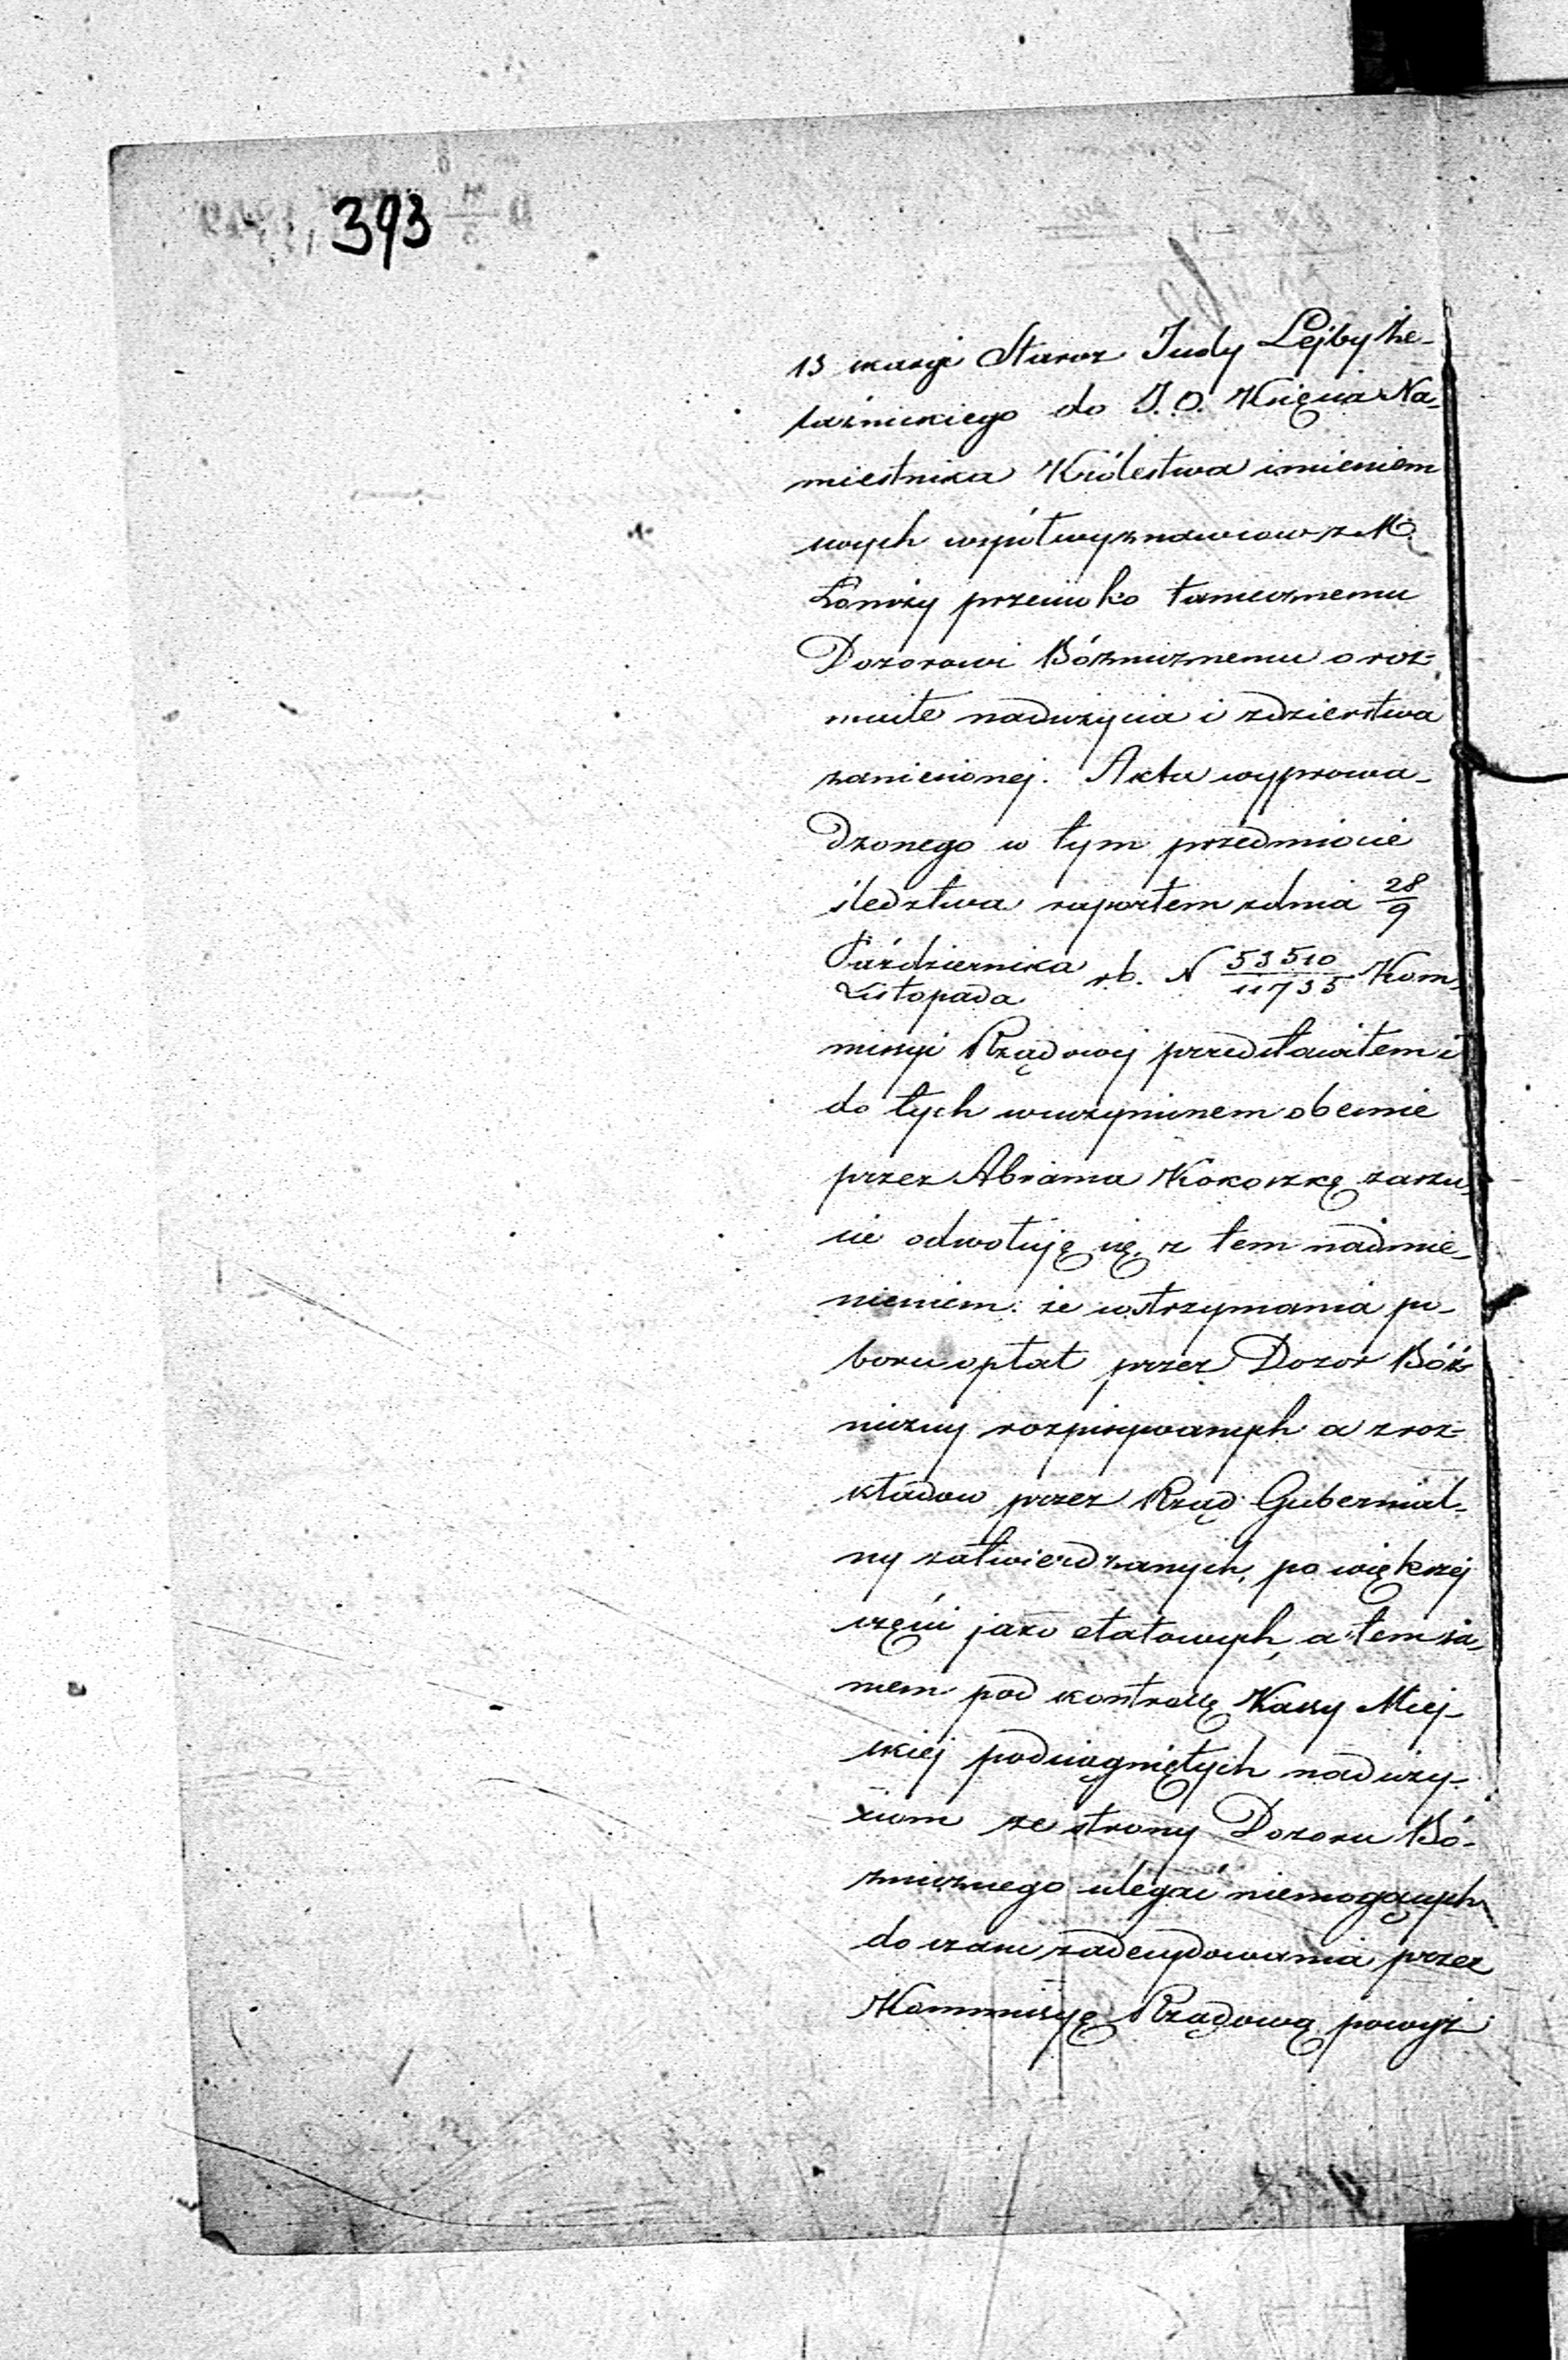 393
13 skargi Staroz Judy Lejby Że-
laźnickiego do J. O. Księcia Na-
miestnika Królestwa imieniem
swych współwyznawcow z M.
Łomży przeciwko tamecznemu
Dozorowi Bóżnicznemu o roz-
maite nadużycia i zdzierstwa
zaniesionej. Akta wyprowa-
dzonego w tym przedmiocie
śledztwa raportem z dnia 28/9
Października/Listopada r.b. N 53510/11735 Kom-
missyi Rządowej przedstawiłem i
do tych w uczynionem obecnie
przez Abrama Kokoszkę zarzu-
cie odwołuję się, z tem nadmie-
nieniem: że wstrzymania po-
boru opłat przez Dozor Bóż-
niczny rozpisywanych a z roz-
kładow przez Rząd Gubernial-
ny zatwierdzanych, po większej
części jako etatowych, a tem sa-
mem pod kontrollę Kassy Miej-
skiej podciągniętych naduży-
ciom ze strony Dozoru Bó-
żnicznego ulegać niemogących
do czasu zadecydowania przez
Kommissyę Rządową powyż